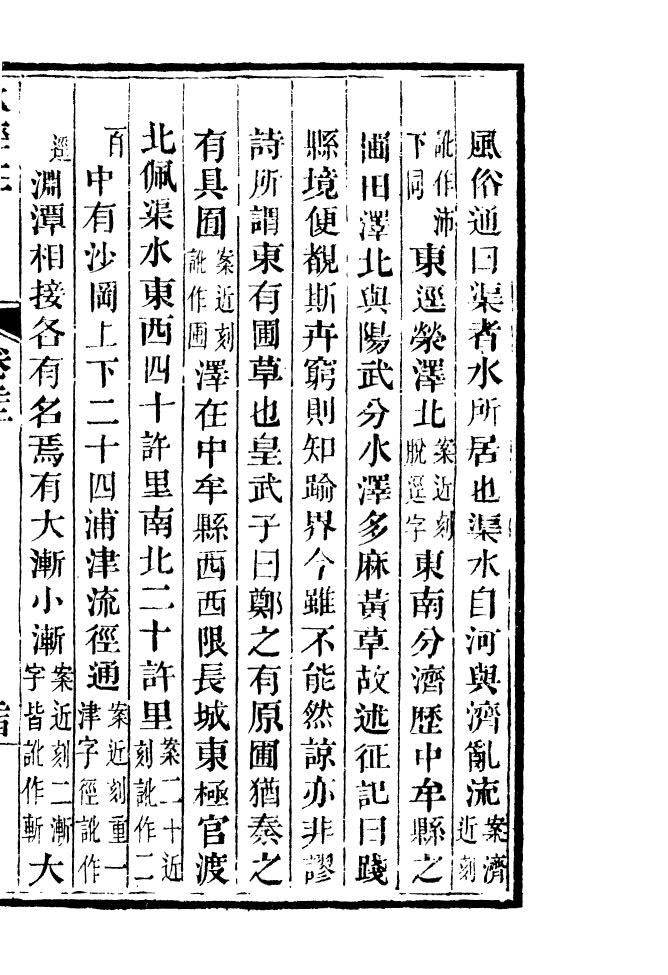 風俗通曰渠者水所居也渠水自河與濟亂流案濟近刻
訛作沛下同東逕滎澤北案近刻脫逕字東南分濟歷中牟縣之
圃田澤北與陽武分水澤多麻黃草故述征記曰踐
縣境便覩斯卉窮則知踰界今雖不能然諒亦非謬
詩所謂東有圃草也皇武子曰鄭之有原圃猶秦之
有具囿案近刻訛作圃澤在中牟縣西西限長城東極官渡
北佩渠水東西四十許里南北二十許里案二十近刻訛作二
百中有沙岡上下二十四浦津流徑通案近刻重一津字徑訛作
逕淵潭相接各有名焉有大漸小漸案近刻二漸字皆訛作斬大